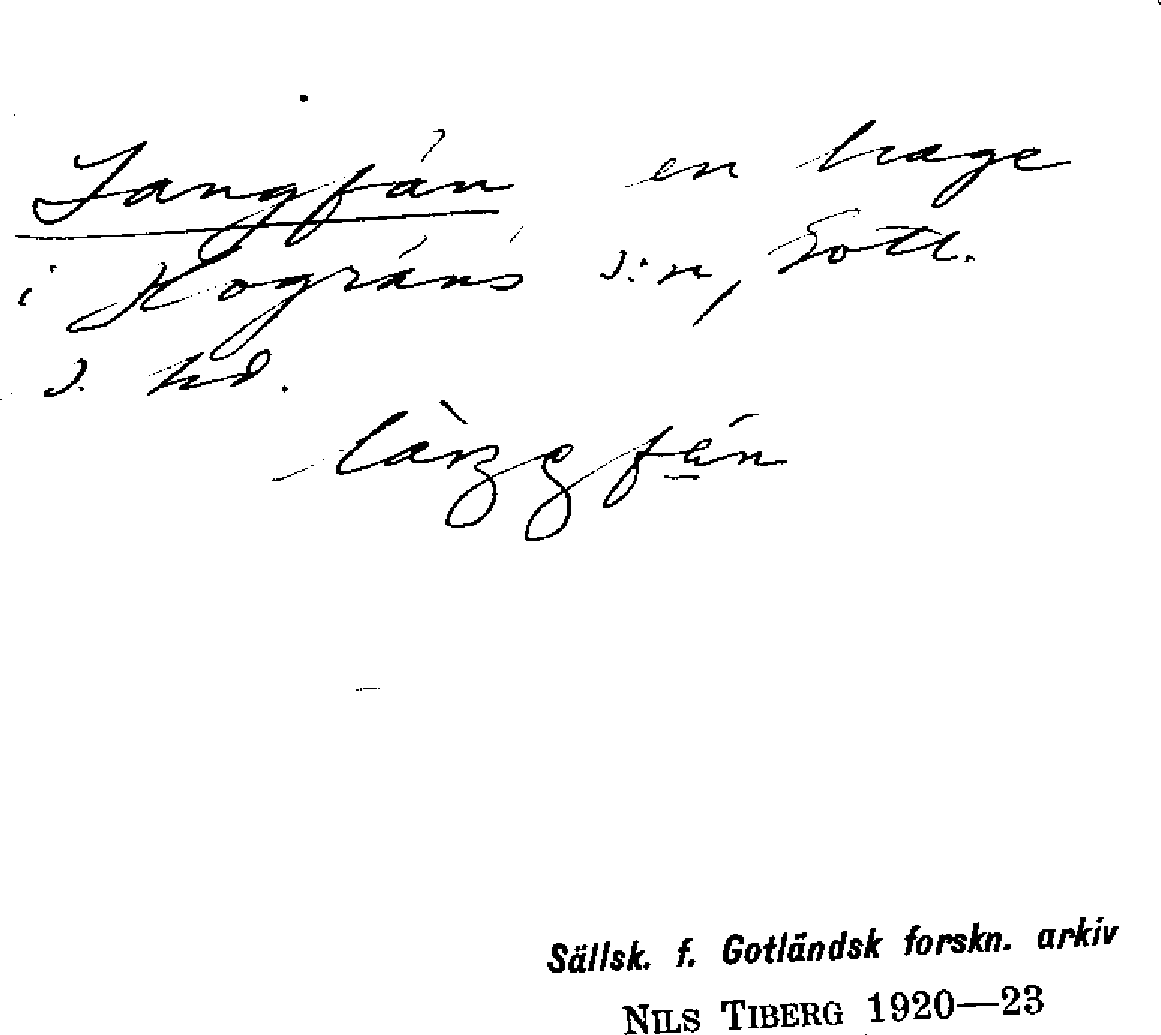 Langfán en hage
i Kográns s:n, Gotl.
s. hd.
làŋgfán
Sällsk. f. Gotländsk forskn. arkiv
NILS TIBERG 1920—23